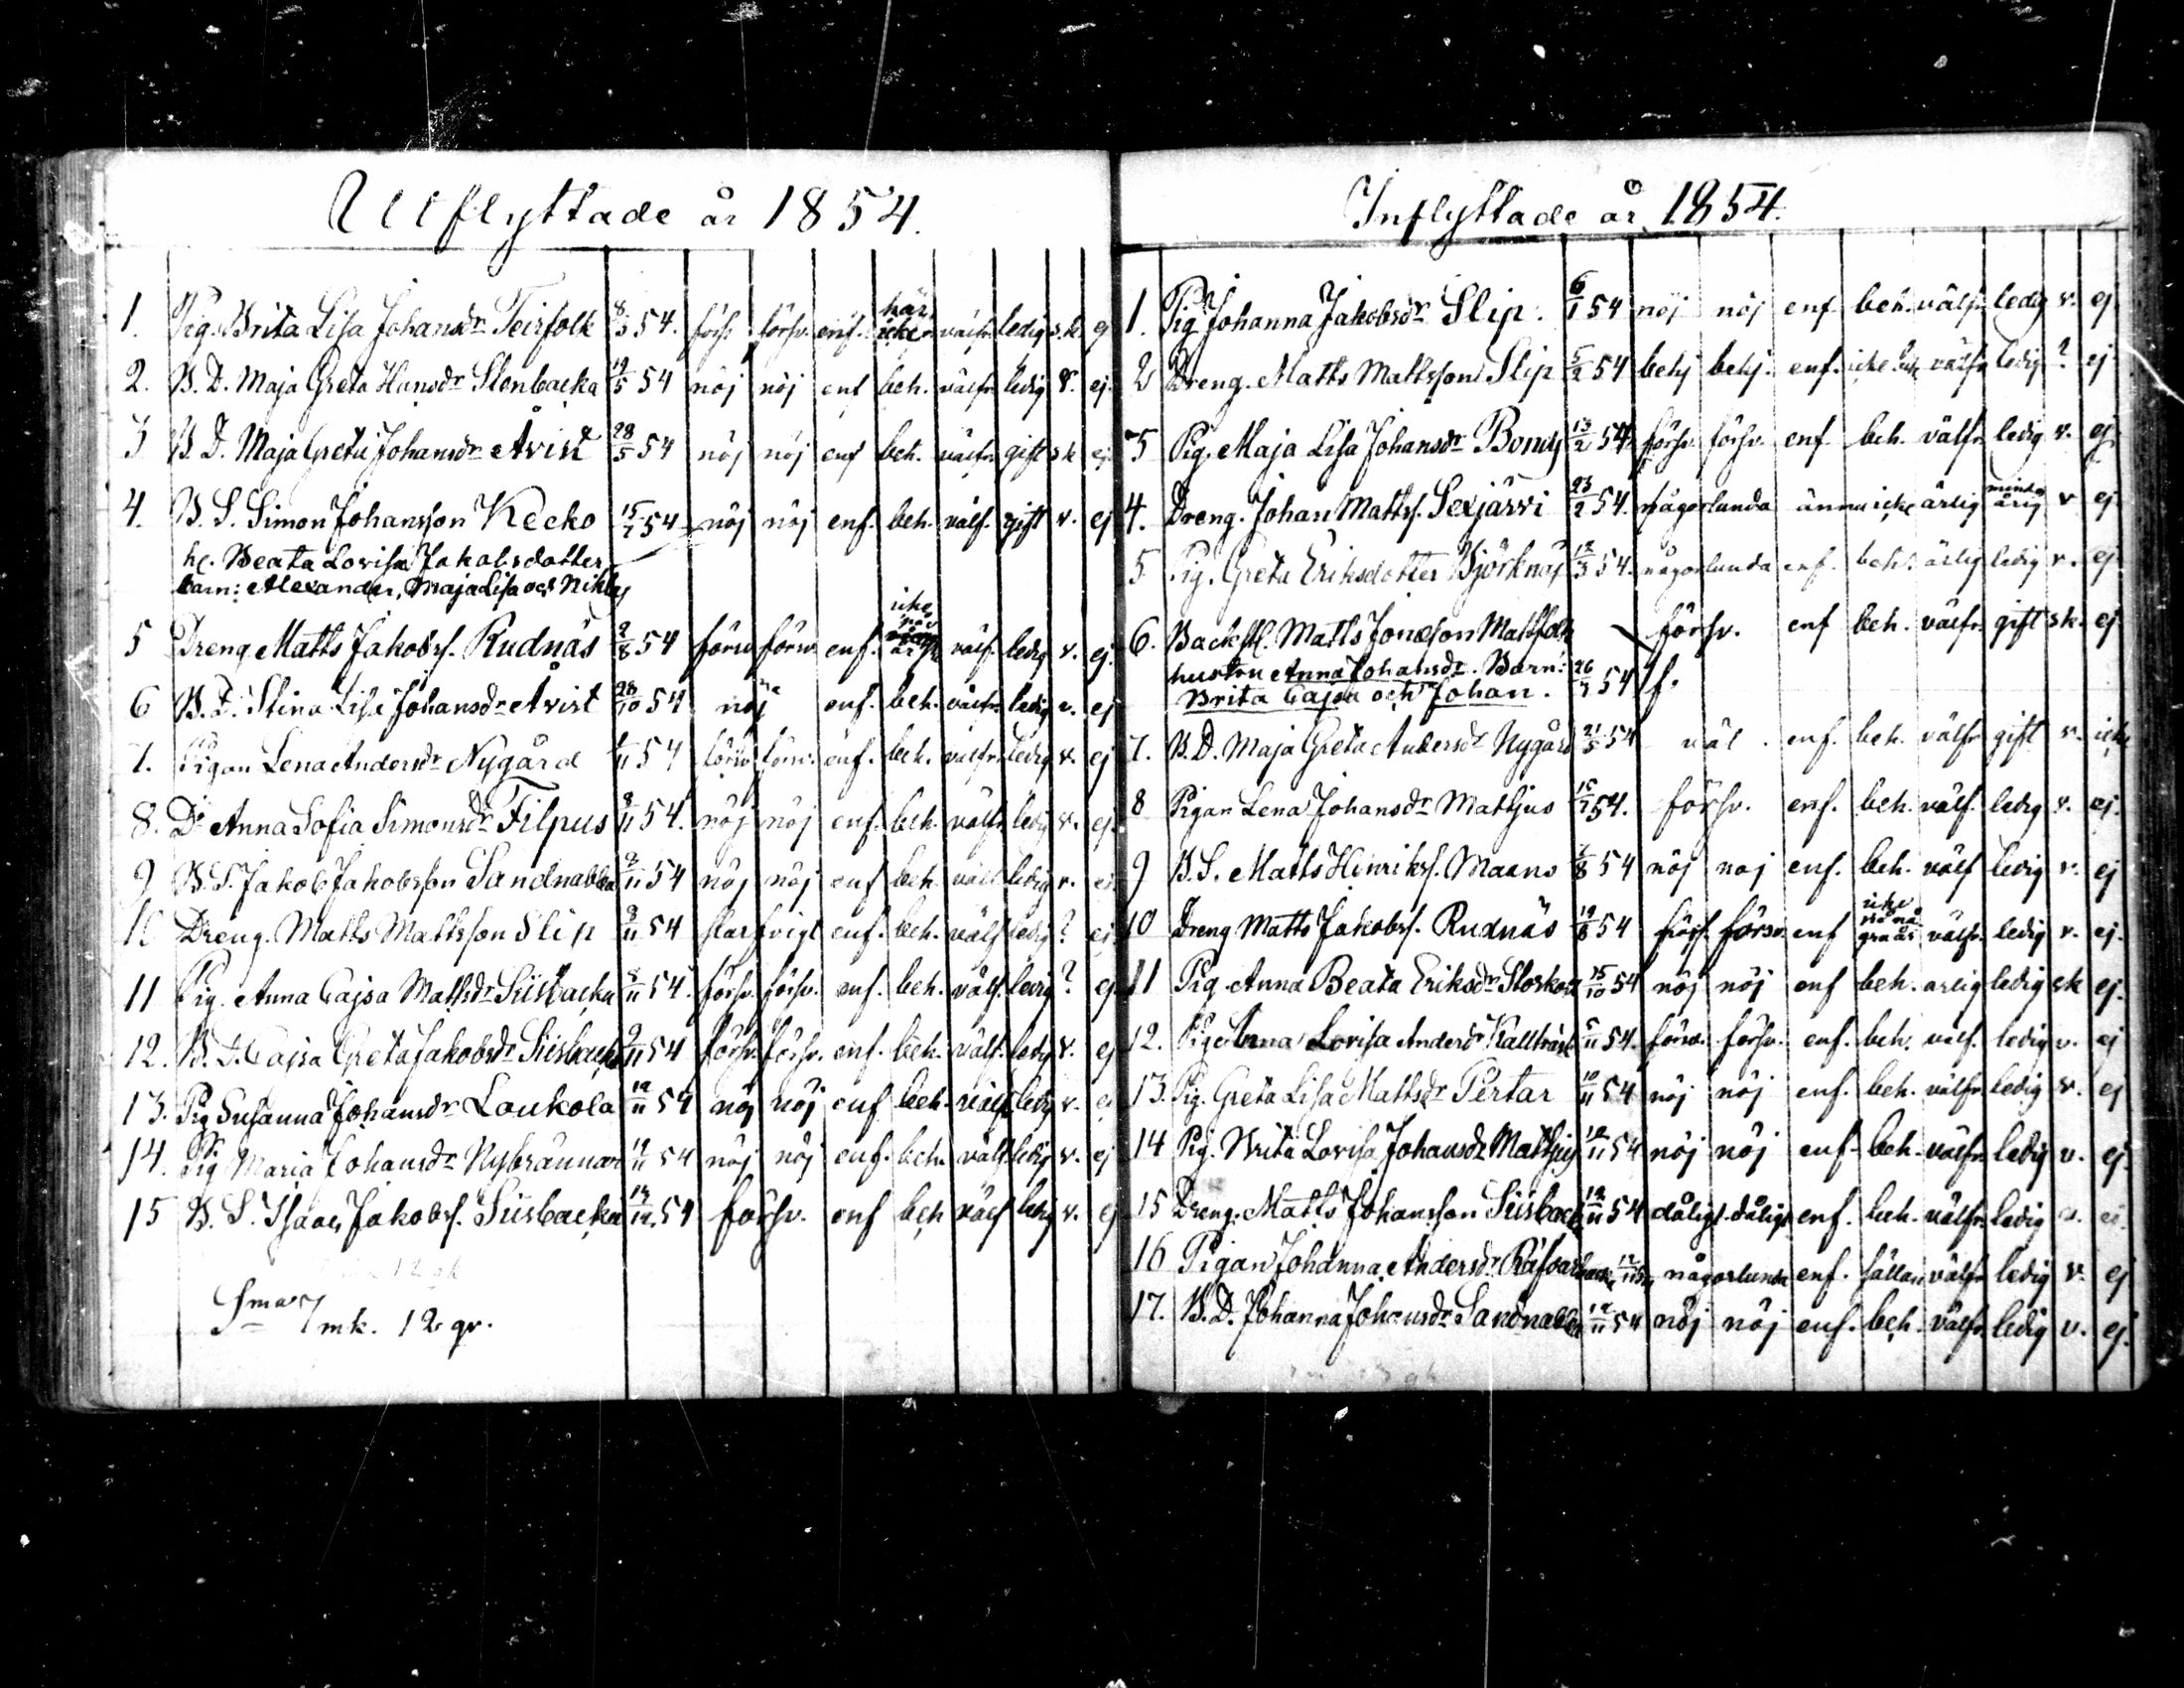 Utflyttade år 1854.
1. Pig. Brita Lisa Johansdr Teirfolk 8/3 54. försv försv. enf. här icke välfr. ledig s.k. ej
2. B. D. Maja Greta Hansdr Stenbacka 19/5 54 nöj nöj enf beh. välfr. ledig v. ej.
3 B D. Maja Greta Johansdr Åvist 28/5 54 nöj nöj enf beh. välfr. gift sk ej.
4. B. S. Simon Johansson Kecko 15/7 54 nöj nöj enf. beh. välf. gift v. ej
h. Beata Lovisa Jakobsdotter
barn: Alexander, Maja Lisa och Niklas
5 Dreng Matts Jakobss. Rudnäs 9/8 54 försv försv. enf. icke på år välf. ledig v. ej.
6 B. D. Stina Lisa Johansdr Åvist 28/10 54 nöj enf. beh. välfr. ledig v. ej
7. Pigan Lena Andersdr Nygård /11 54 försv försv. enf. beh. välfr. ledig v. ej
8. Do Anna Sofia Simonsdr Filpus 8/11 54. nöj nöj enf. beh. välfr. ledig v. ej.
9 B. S. Jakob Jakobsson Sandnabba 9/11 54 nöj nöj enf beh. välf ledig v. ej
10 Dreng. Matts Mattsson Slip 9/11 54 enf. beh. välf ledig ? ej
11 Pig. Anna Cajsa Mattsdr Siisbacka 8/11 54. försv. försv. enf. beh. välf. ledig ? ej
12. B. D. Cajsa Greta Jakobsdr Siisbacka 9/11 54 försv. försv. enf. beh. välf. ledig v. ej
13. Pig Susanna Johansdr Loukola 12/11 54 nöj nöj enf beh. välf ledig v. ej
14. Pig Maria Johansdr Nybrännar 19/11 54 nöj nöj enf. beh. välf ledig v. ej
15 B. S. Isaac Jakobss. Siisbacka 14/12 54 försv. enf beh välf ledig v. ej
Sma 7 mk. 12 gr.
Inflyttade år 1854.
1. Pig Johanna Jakobsdr Slip. 6/1 54 nöj nöj enf. beh. välfr. ledig v. ej
2 Dreng. Matts Mattsson Slip 5/2 54 behj behj. enf. icke beh välfr ledig ? ej
3 Pig. Maja Lisa Johansdr Bonny 13/2 54. försv. försv. enf. beh. välfr. ledig v. ej.
4. Dreng. Johan Mattss. Sexjärvi 23/2 54. någorlunda ännu icke ärlig mindårig v ej
5 Pig. Greta Eriksdotter Björknäs 12/3 54. någorlunda enf. beh. ärlig ledig v. ej
6. Backstl. Matts Jonasson Mattfolk försv. enf beh. välfr. gift sk. ej
hustru Anna Johansdr. Barn: 26/ 54 f.
Brita Cajsa och Johan.
7. B. D. Maja Greta Andersdr Nygård 21/5 54 väl. enf. beh. välfr gift v. icke
8 Pigan Lena Johansdr Mattjus 16/7 54. försv. enf. beh. välf. ledig v. ej.
9 B. S. Matts Henrikss. Maans /8 54 nöj nöj enf. beh. välf ledig v. ej
10 Dreng Matts Jakobss. Rudnäs 19/8 54 försv. försv. enf icke på några år välfr. ledig v. ej.
11 Pig. Anna Beata Eriksdr 15/10 54 nöj nöj enf beh. ärlig ledig sk ej.
12. Pig. Anna Lovisa Andersdr Kallträsk 5/11 54. försv. försv. enf. beh. välf. ledig v. ej
13. Pig. Greta Lisa Mattsdr Pertar 10/11 54 nöj nöj enf. beh. välfr ledig v. ej
14 Pig. Brita Lovisa Johansdr Mattjus 12/11 54 nöj nöj enf. beh. välfr. ledig v. ej.
15 Dreng. Matts Johansson Siisbacka 12/11 54 dåligt. dåligt enf. beh. välfr. ledig v. ej.
16 Pigan Johanna Andersdr Räfsarbacka 12/11 54 någorlunda enf. sällan välfr. ledig v. ej
17. B. D. Johanna Johansdr Sandnabba 12/11 54 nöj nöj enf. beh. välfr. ledig v. ej.